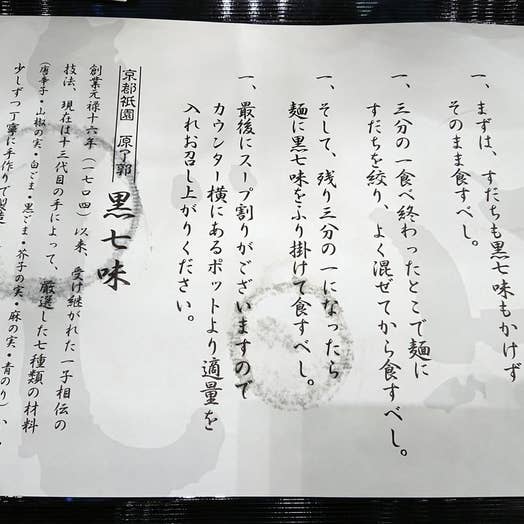 一、まずは、すだちも黒七味もかけず
そのまま食すべし。
一、三分の一食べ終わったとこで麺に
すだちを絞り、よく混ぜてから食すべし。
一、そして、残り三分の一になったら
麺に黒七味をふり掛けて食すべし。
一、最後にスープ割りがございますので
カウンター横にあるポットより適量を
入れお召し上がりください。
京都祇園 原了郭 黒七味
創業元禄十六年(一七〇四)以来、受け継がれた一子相伝の
技法、現在は十三代目の手によって、厳選した七種類の材料
(唐辛子・山椒の実・白ごま・黒ごま・芥子の実・麻の実・青のり)、
少しずつ丁寧に手作りで製造